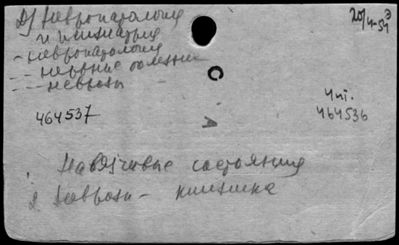 Д) Невропатология
и психиатрия
- невропатология
- - нервные болезни
- - - неврозы
20/4-51
464537
Чит.
464536
С
А
Навязчивые состояния
2 Неврозы - клиника